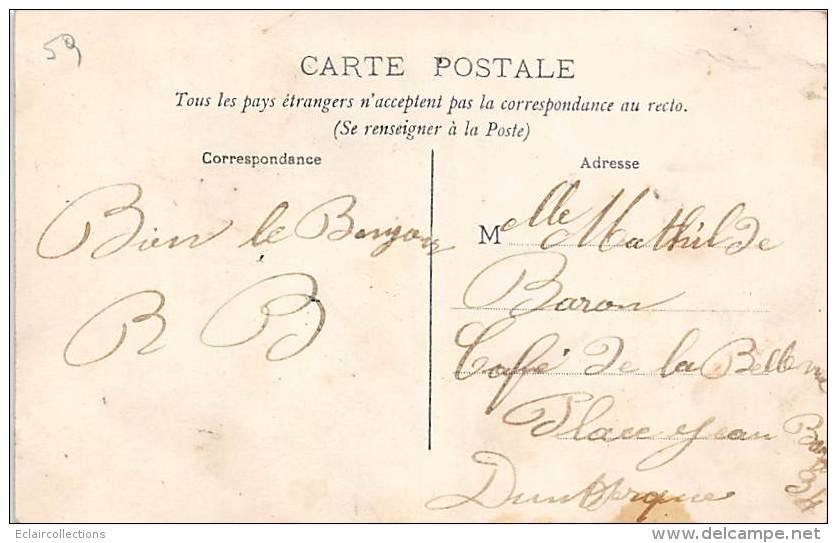 59
CARTE POSTALE
Tous les pays étrangers n'acceptent pas la correspondance au recto.
(Se renseigner à la Poste)
Correspondance
Adresse
Bien le Bonjour
R B
Melle Mathilde
Baron
Café de la Bellevue
Place Jean Bart
34
Dunkerque
Eclaircollections
www.delcampe.net